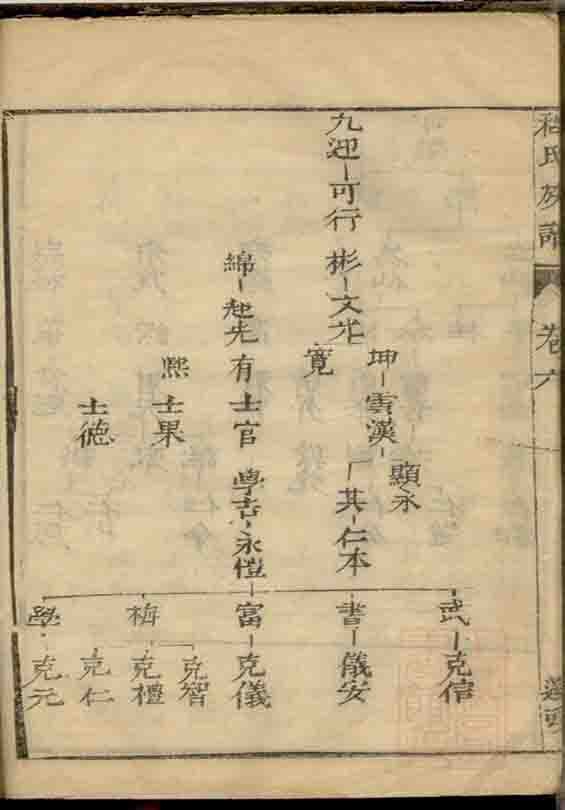 氏族譜 卷六
武 克信
坤 雲漢 顯永
九迎 可行 彬 文光
寬 其 仁本 書 儀安
綿 起先 有 士官 學吉 永愷 富 克儀
熙 士果 梅 克智
克禮
士德 克仁
學 克元